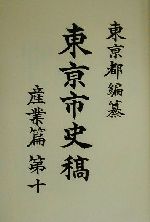 東京都編纂
東京市史稿
産業篇 第十